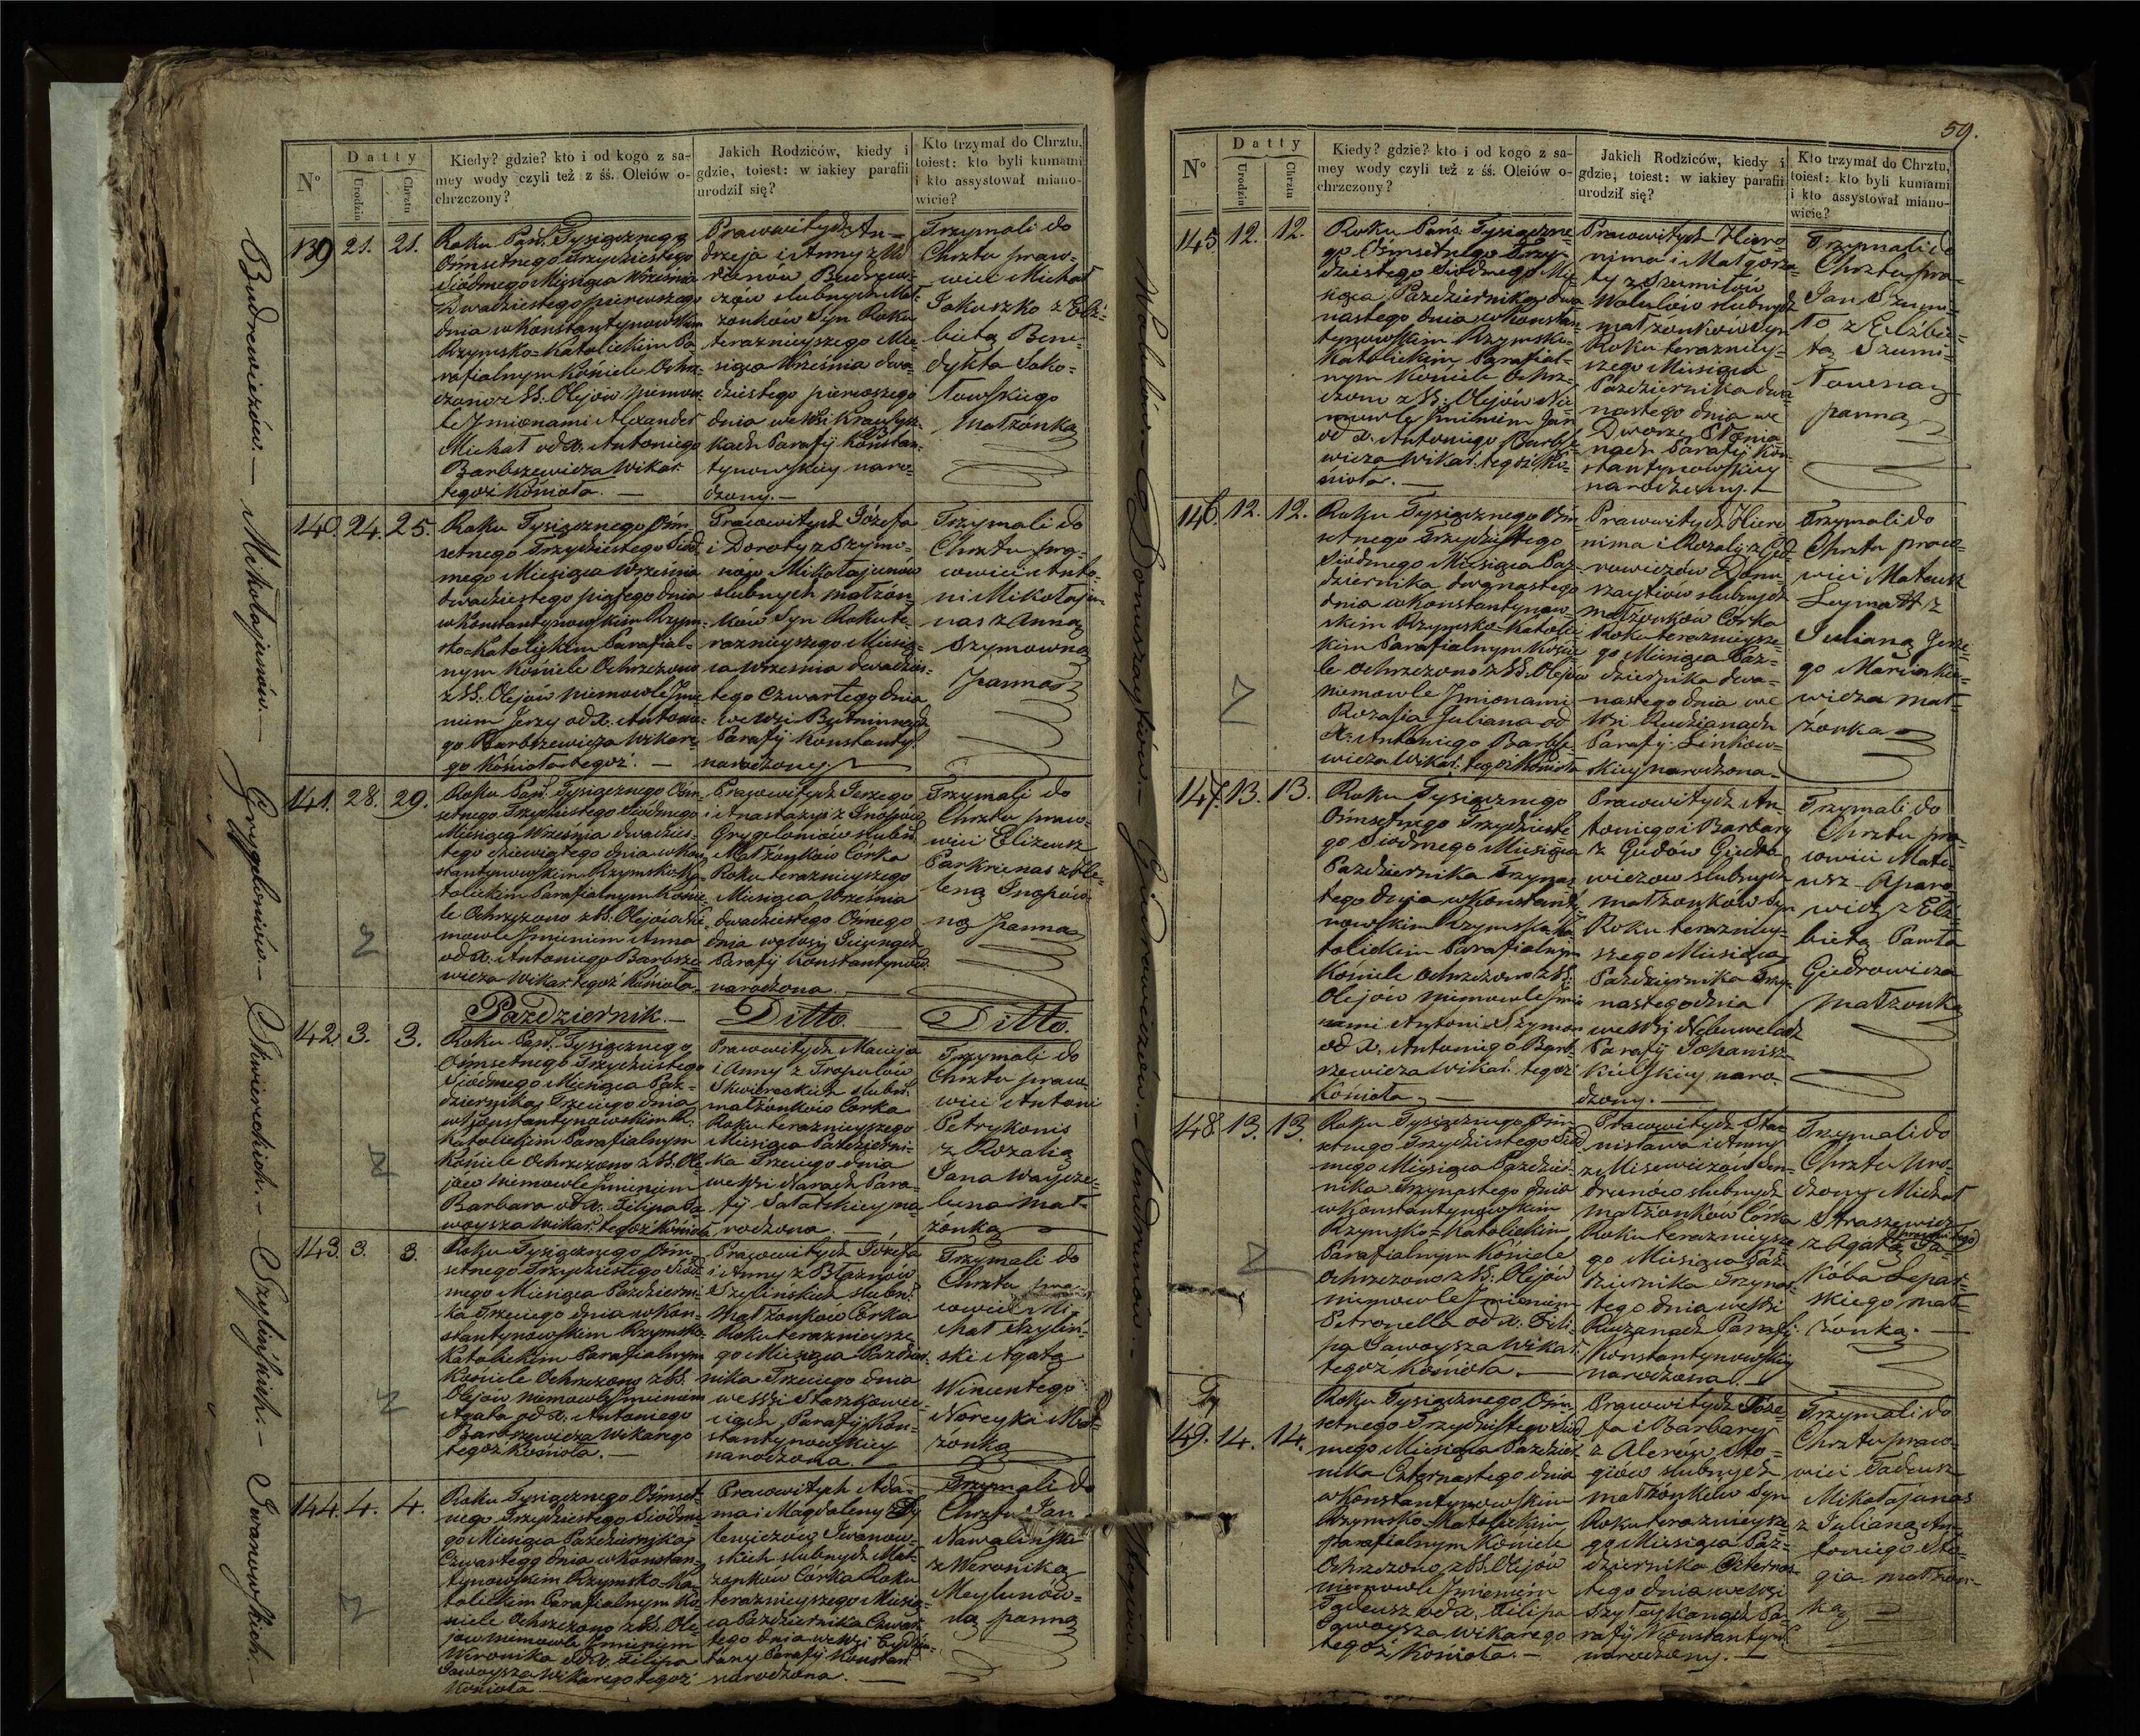 Nº
Datty
Urodzin
Chrztu
Kiedy? gdzie? kto i od kogo z sa-
mey wody czyli też z śś. Oleiów o-
chrzczony?
Jakich Rodziców, kiedy i
gdzie, toiest: w iakiey parafii
urodził się?
Kto trzymał do Chrztu,
toiest: kto byli kumami
i kto assystował miano-
wicie?
139
21.
21.
Roku Pań. Tysiącznego
Ośmsetnego Trzydziestego
Siódmego Miesiąca Września
Dwadziestego pierwszego
dnia w Konstantynowskim
Rzymsko-Katolickim Pa-
rafialnym Kościele Ochrz-
czono z SS. Olejów niemow-
le Jmionami Alexander
Michał od X. Antoniego
Barbszewicza Wikar.
tegoż Kościoła.
Prawowitych An-
drzeja i Anny z
Budrewi-
czów slubnych Mał-
żonków Syn Roku
teraznieyszego Mie-
siąca Września dwa-
dziestego pierwszego
dnia we Wsi
Parafij Konstan-
tynowskiey naro-
dzony.
Trzymali do
Chrztu praw-
wici Michał
Jakuszko z Elż-
bietą Bene-
dykta Soko-
łowskiego
Małżonką
140.
24.
25.
Roku Tysiącznego Ośm-
setnego Trzydziestego Siód-
mego Miesiąca Września
dwadziestego piątego dnia
w Konstantynowskim Rzym-
sko-Katolickim Parafial-
nym Kościele Ochrzczono
z SS. Olejów niemowle Jmie-
niem Jerzy od X. Antonie-
go Barbszewicza Wikare-
go Kościoła tegoż.
Prawowitych Józefa
i Doroty z Szymo-
nów Mikołajunów
slubnych małżon-
ków Syn Roku te-
raznieyszego Miesią-
ca Września dwadzies-
tego Czwartego dnia
we Wsi
Parafij Konstanty.
narodzony.
Trzymali do
Chrztu pra-
wowici Anto-
ni Mikołaju-
nas z Anną
Szymowną
panną
141.
28.
29.
Roku Pań. Tysiącznego Ośm-
setnego Trzydziestego Siódmego
Miesiąca Września dwadzies-
tego dziewiątego dnia w Kon-
stantynowskim Rzymsko-Ka-
tolickim Parafialnym Koście-
le Ochrzczono z SS. Olejów nie-
mowle Jmieniem Anna
od X. Antoniego Barbsze-
wicza Wikar. tegoż Kościoła.
Prawowitych Jerzego
i Anastazyi z
Grygeloniów slubn.
Małżonków Córka
Roku teraznieyszego
Miesiąca Września
dwadziestego Osmego
dnia we Wsi
Parafij Konstantynow.
narodzona.
Trzymali do
Chrztu praw-
wici Elizeusz
z He-
leną
ną panną
Październik.
Ditto.
Ditto.
142.
3.
3.
Roku Pań. Tysiącznego
Ośmsetnego Trzydziestego
Siódmego Miesiąca Paź-
dziernika Trzeciego dnia
w Konstantynowskim R.
Katolickim Parafialnym
Kościele Ochrzczono z SS. Ole-
jow niemowle Jmieniem
Barbara od X. Filipa Ja-
woysza Wikar. tegoż Kościoła
Prawowitych Macieja
i Anny z Tropulow
Skwiereckich slubn.
małżonków Corka
Roku teraznieyszego
Miesiąca Październi-
ka Trzeciego dnia
we Wsi Narach Para-
fij Sałatskiey na-
rodzona.
Trzymali do
Chrztu praw-
wici Antoni
Petrykonis
z Rozalią
Jana
mał-
żonką
143.
3.
3.
Roku Tysiącznego Ośm-
setnego Trzydziestego Siód-
mego Miesiąca Październi-
ka Trzeciego dnia w Kon-
stantynowskim Rzymsko-
Katolickim Parafialnym
Kościele Ochrzczono z SS.
Olejów niemowle Jmieniem
Agata od X. Antoniego
Barbszewicza Wikarego
tegoż Kościoła.
Prawowitych Józefa
i Anny z Błaznów
Szylinskich slubn.
Małżonków Córka
Roku teraznieysze-
go Miesiąca Paździer-
nika Trzeciego dnia
we Wsi
Parafij Kon-
stantynowskiey
narodzona.
Trzymali do
Chrztu pra-
wowici Mi-
chał Szyliń-
ski Agatą
Wincentego
Noreyki Mał-
żonką
144.
4.
4.
Roku Tysiącznego Ośmset-
nego Trzydziestego Siódme-
go Miesiąca Października
Czwartego dnia w Konstan-
tynowskim Rzymsko-Ka-
tolickim Parafialnym Ko-
ściele Ochrzczono z SS. Ole-
jow niemowle Jmieniem
Weronika od X. Filipa
Jawoysza Wikarego tegoż
Kościoła
Prawowitych Ada-
ma i Magdaleny
Iwanow-
skich slubnych Mał-
żonków Corka Roku
teraznieyszego Miesią-
ca Października Czwar-
tego dnia we Wsi
Parafij Konstan.
narodzona.
Trzymali do
Chrztu Jan
Nawaliński
z Weroniką
Meylunow-
ną panną
Budrewiczów. — Mikołajunów. — Grygeloniów. — Skwiereckich. — Szylińskich. — Iwanowskich. —
59.
Nº
Datty
Urodzin
Chrztu
Kiedy? gdzie? kto i od kogo z sa-
mey wody czyli też z śś. Oleiów o-
chrzczony?
Jakich Rodziców, kiedy i
gdzie, toiest: w iakiey parafii
urodził się?
Kto trzymał do Chrztu,
toiest: kto byli kumami
i kto assystował miano-
wicie?
145
12.
12.
Roku Pańs. Tysiączne-
go Ośmsetnego Trzy-
dziestego Siódmego Mie-
siąca Października dwa-
nastego dnia w Konstan-
tynowskim Rzymsko-
Katolickim Parafial-
nym Kościele Ochrz-
czono z SS. Olejów Nie-
mowle Jmieniem Jan
od X. Antoniego Barbsze-
wicza Wikar. tegoż Ko-
ścioła.
Prawowitych Hiero-
nima i Małgorza-
ty z Szumiłów
Walulów slubnych
małżonków Syn
Roku terazniey-
szego Miesiąca
Października dwa-
nastego dnia we
Dworze
Parafij Kon-
stantynowskiey
narodzony.
Trzymali do
Chrztu pra.
Jan Szumi-
ło z Elżbie-
tą Szumi-
łowną
panną
146.
12.
12.
Roku Tysiącznego Ośm-
setnego Trzydziestego
Siódmego Miesiąca Paź-
dziernika dwanastego
dnia w Konstantynow-
skim Rzymsko-Katolic-
kim Parafialnym Koście-
le Ochrzczono z SS. Olejów
niemowle Jmionami
Rozalia Juliana od
X. Antoniego Barbsze-
wicza Wikar. tegoż Kościoła
Prawowitych Hiero-
nima i Rozalij z
slubnych
małżonków Córka
Roku teraznieysze-
go Miesiąca Paź-
dziernika dwa-
nastego dnia we
Wsi Rudzianach
Parafij Linkow-
skiey narodzona
Trzymali do
Chrztu praw-
wici Mateusz
z
Julianą Jerze-
go Marcinkie-
wicza mał-
żonką
147.
13.
13.
Roku Tysiącznego
Ośmsetnego Trzydzieste-
go Siódmego Miesiąca
Października Trzynas-
tego dnia w Konstanty-
nowskim Rzymsko-Ka-
tolickim Parafialnym
Kościele Ochrzczono z SS.
Olejów niemowle Jmio-
nami Antoni Szymon
od X. Antoniego Barb-
szewicza Wikar. tegoż
Kościoła
Prawowitych An-
toniego i Barbary
z Gudów Giedra-
wiczow slubnych
małżonków Syn
Roku terazniey-
szego Miesiąca
Października Trzy-
nastego dnia
we Wsi
Parafij
naro-
dzony.
Trzymali do
Chrztu pra-
wowici Mate-
usz
z Elż-
bietą Pawła
Giedrowicza
małżonką
148.
13.
13.
Roku Tysiącznego Ośm-
setnego Trzydziestego Siód-
mego Miesiąca Paździer-
nika Trzynastego dnia
w Konstantynowskim
Rzymsko-Katolickim
Parafialnym Kościele
Ochrzczono z SS. Olejów
niemowle Jmieniem
Petronella od X. Fili-
pa Jawoysza Wikar.
tegoż Kościoła.
Prawowitych Sta-
nisława i Anny
z Misewiczów Jen-
drunów slubnych
małżonków Córka
Roku teraznieysze-
go Miesiąca Paź-
dziernika Trzynas-
tego dnia we Wsi
Parafij
Konstantynowskiey
narodzona.
Trzymali do
Chrztu Uro-
dzony Michał
Straszewicz
z Agatą Ja-
kóba Lepar-
skiego mał-
żonką.
149.
14.
14.
Roku Tysiącznego Ośm-
setnego Trzydziestego Siód-
mego Miesiąca Paździer-
nika Czternastego dnia
w Konstantynowskim
Rzymsko-Katolickim
Parafialnym Kościele
Ochrzczono z SS. Olejów
niemowle Jmieniem
Tadeusz od X. Filipa
Jawoysza Wikarego
tegoż Kościoła.
Prawowitych Józe-
fa i Barbary
z Alerów Sto-
giów slubnych
małżonków Syn
Roku teraznieysze-
go Miesiąca Paź-
dziernika Czternas-
tego dnia we Wsi
Pa-
rafij Konstantyn.
narodzony.
Trzymali do
Chrztu praw-
wici Tadeusz
Mikołajunas
z Julianą An-
toniego Sto-
gia małżon-
ką
Walulów. — Donuszaytów. — Giedrowiczów. — Jendrunów. — Stogiów. —